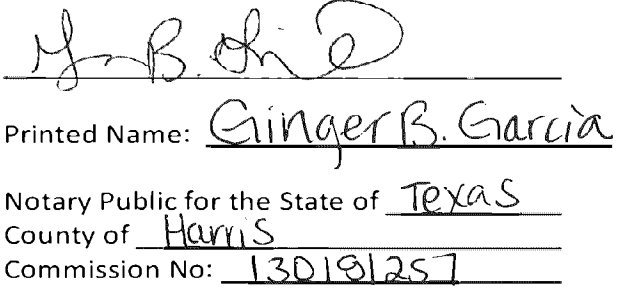 Printed Name: Ginger B. Garcia
Notary Public for the State of Texas
County of Harris
Commission No: 130191257